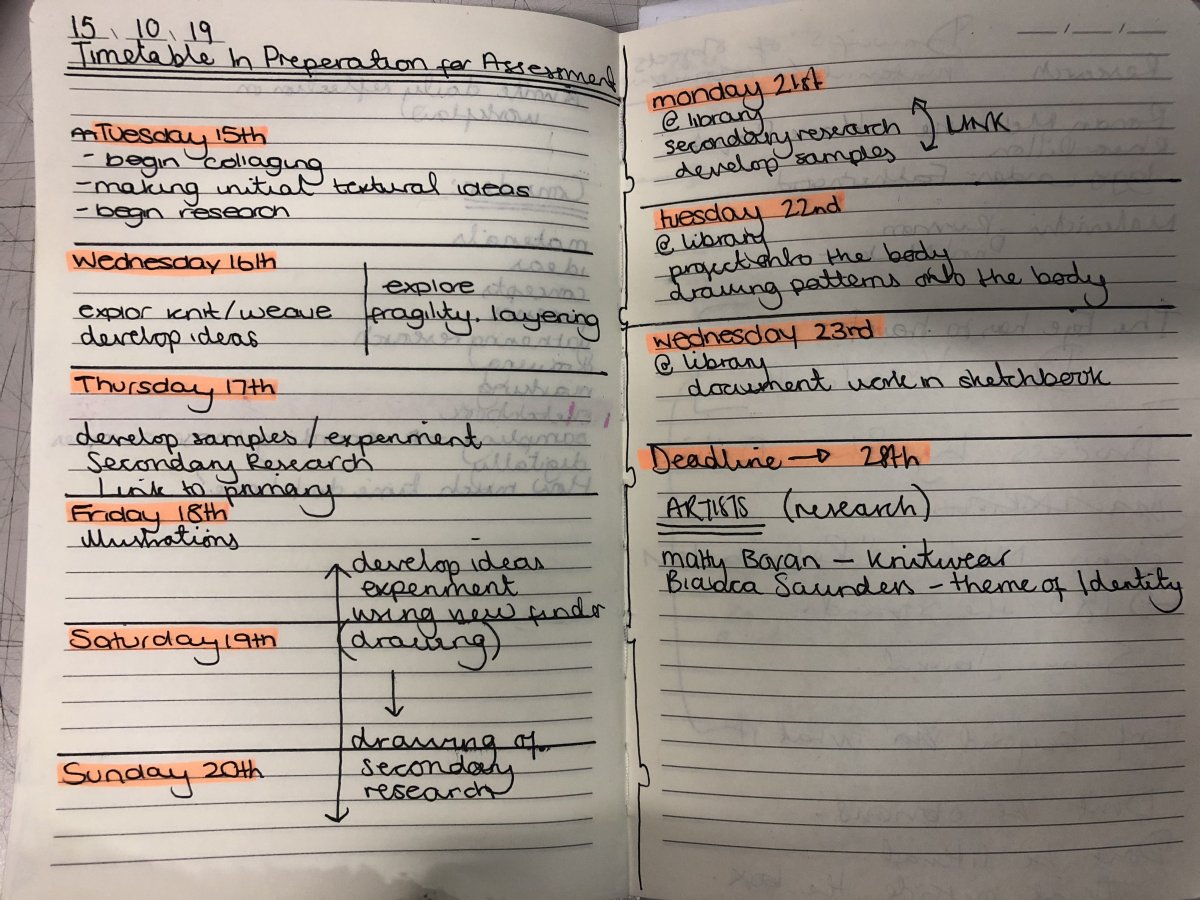 15. 10. 19
Timetable In Preperation for Assessment
Tuesday 15th
- begin collaging
- making initial textural ideas
- begin research
Wednesday 16th
explor knit/weave
develop ideas
explore
fragility. layering
Thursday 17th
develop samples / experiment
Secondary Research
Link to primary
Friday 18th
Illustrations
develop ideas
experiment
using new finder
(drawing)
Saturday 19th
drawing of
secondary
research
Sunday 20th
monday 21st
@ library
secondary research
develop samples
LINK
tuesday 22nd
@ library
projection onto the body
drawing patterns onto the body
wednesday 23rd
@ library
document work in sketchbook
Deadline → 28th
ARTISTS (research)
matty Bovan - knitwear
Saunders - theme of Identity